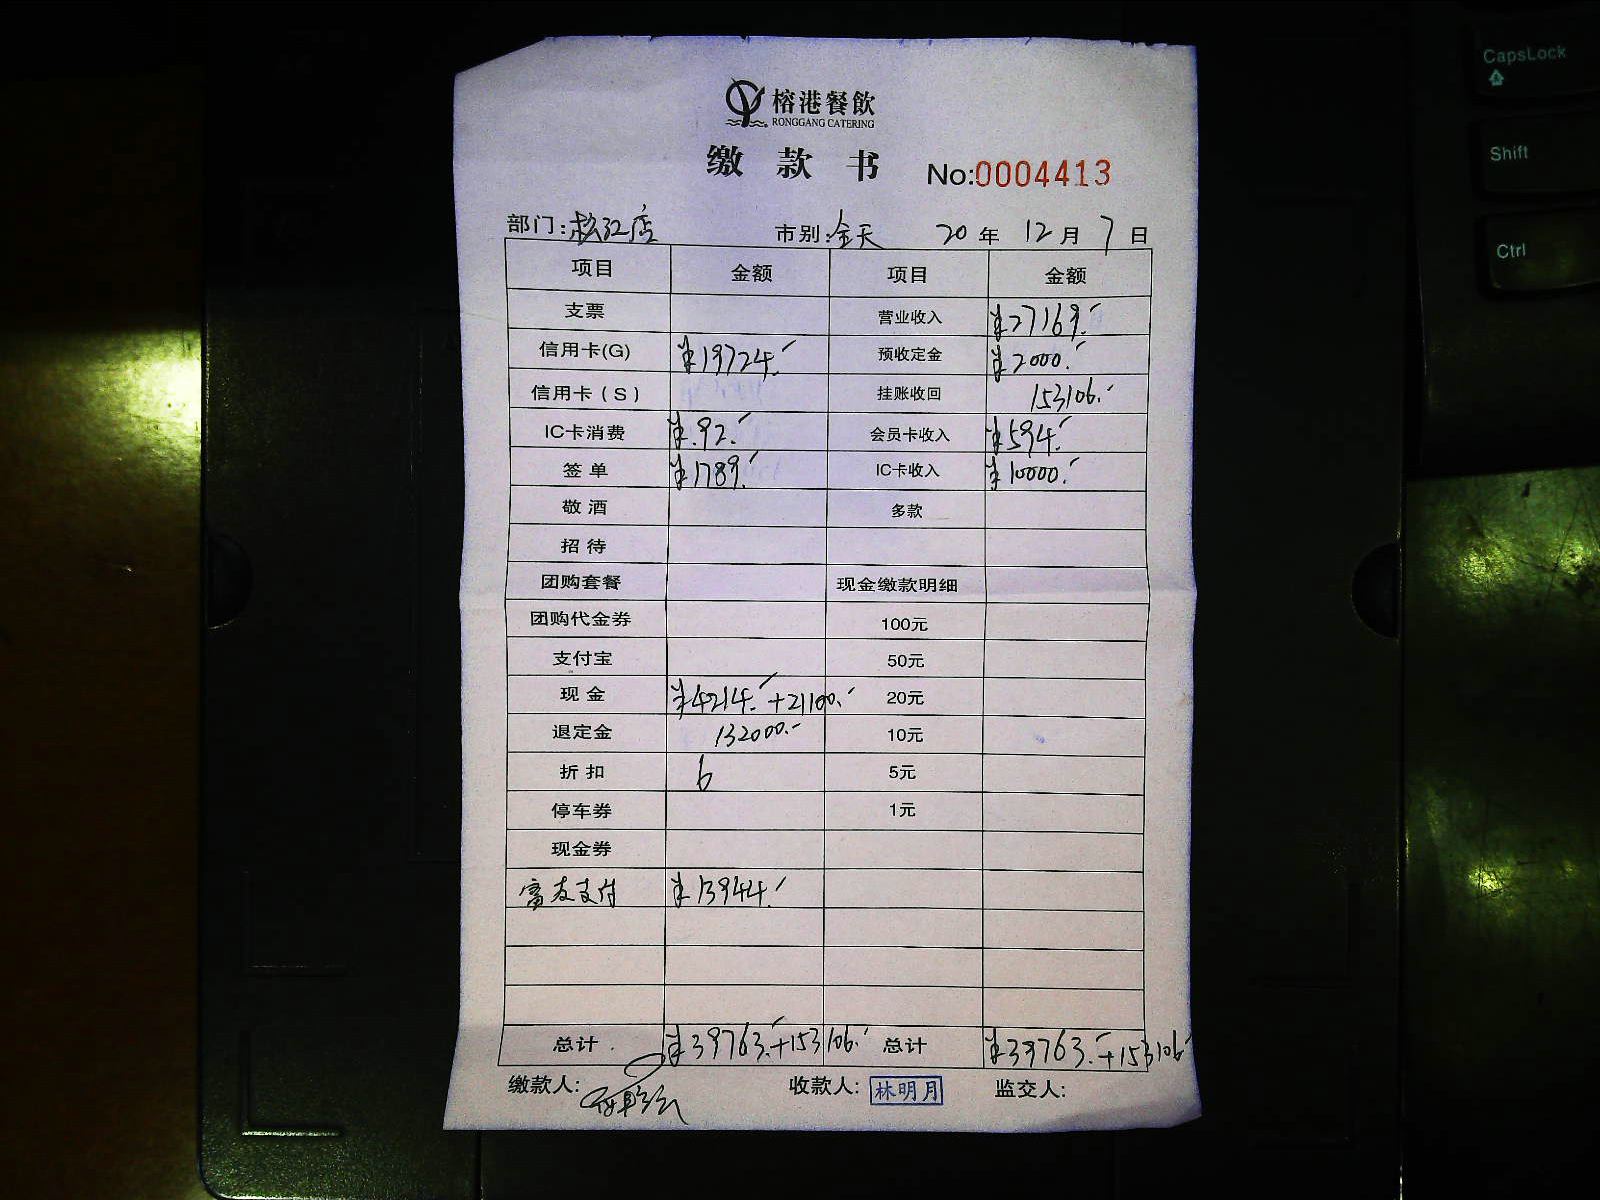 榕港餐飲
RONGGANG CATERING
缴 款 书 No:0004413
部门:松江店 市别:全天 20 年 12 月 7 日
项目 金额 项目 金额
支票 营业收入 ¥27169.-
信用卡(G) ¥19724.- 预收定金 ¥2000.-
信用卡（S） 挂账收回 153106.-
IC卡消费 ¥.92.- 会员卡收入 ¥594.-
签 单 ¥1789.- IC卡收入 ¥10000.-
敬 酒 多款
招 待
团购套餐 现金缴款明细
团购代金券 100元
支付宝 50元
现 金 ¥4214.- +21100.- 20元
退定金 132000.- 10元
折 扣 6 5元
停车券 1元
现金券
富友支付 ¥13944.-
总计 ¥39763.-+153106.- 总计 ¥39763.-+153106.-
缴款人: 收款人: 林明月 监交人:
CapsLock
Shift
Ctrl